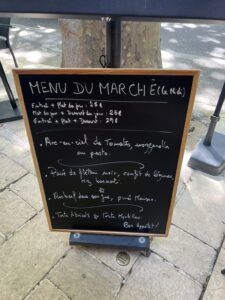 MENU DU MARCHÉ (le Midi)
Entrée + Plat du jour : 25€
Plat du jour + Dessert du jour : 25€
Entrée + Plat + Dessert : 29€
Arc-en-ciel de Tomates, mozzarella
au pesto.
Pavé de flétan noir, confit de légumes,
riz basmati.
ou
purée Maison.
Tarte Abricots & Tarte Myrtilles
Bon Appétit !